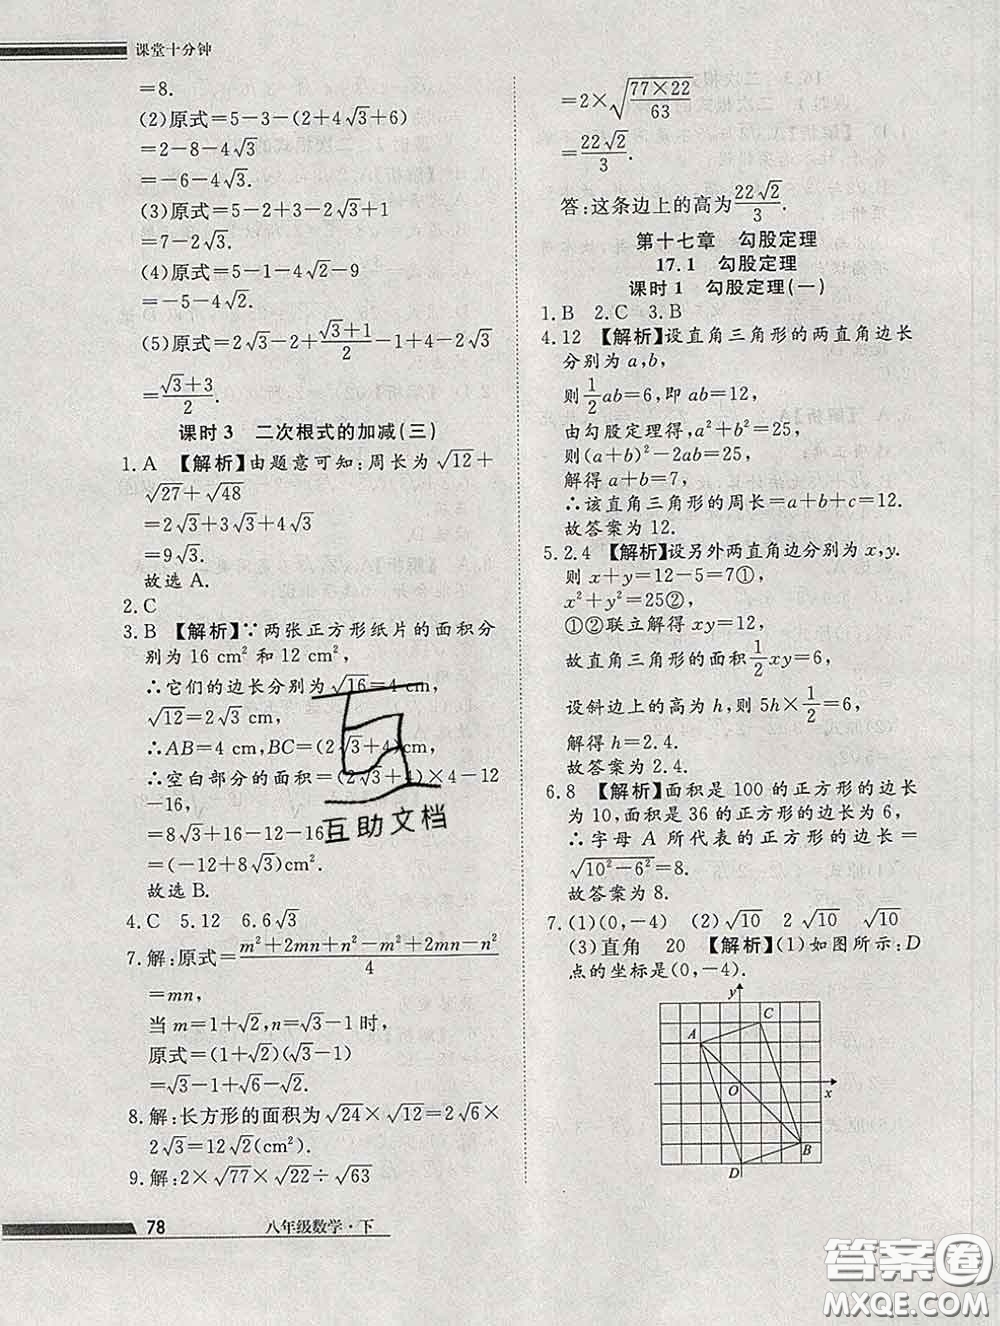 课堂十分钟
=8.
(2)原式=5-3-(2+4√3+6)
=2-8-4√3
=-6-4√3.
(3)原式=5-2+3-2√3+1
=7-2√3.
(4)原式=5-1-4√2-9
=-5-4√2.
(5)原式=2√3-2+(√3+1)/2-1-4+2√3
=(√3+3)/2.
课时3 二次根式的加减(三)
1.A 【解析】由题意可知:周长为√12+
√27+√48
=2√3+3√3+4√3
=9√3.
故选 A.
2.C
3.B 【解析】∵两张正方形纸片的面积分
别为 16 cm² 和 12 cm²,
∴它们的边长分别为√16=4 cm,
√12=2√3 cm,
∴AB=4 cm,BC=(2√3+4)cm,
∴空白部分的面积=(2√3+4)×4-12
-16,
=8√3+16-12-16
=(-12+8√3)cm².
故选 B.
4.C 5.12 6.6√3
7.解:原式=(m²+2mn+n²-m²+2mn-n²)/4
=mn,
当 m=1+√2,n=√3-1时,
原式=(1+√2)(√3-1)
=√3-1+√6-√2.
8.解:长方形的面积为√24×√12=2√6×
2√3=12√2(cm²).
9.解:2×√77×√22÷√63
=2×√(77×22/63)
=22√2/3.
答:这条边上的高为22√2/3.
第十七章 勾股定理
17.1 勾股定理
课时1 勾股定理(一)
1.B 2.C 3.B
4.12 【解析】设直角三角形的两直角边长
分别为 a,b,
则1/2ab=6,即 ab=12,
由勾股定理得,a²+b²=25,
则(a+b)²-2ab=25,
解得 a+b=7,
∴该直角三角形的周长=a+b+c=12.
故答案为 12.
5.2.4 【解析】设另外两直角边分别为 x,y.
则 x+y=12-5=7①,
x²+y²=25②,
①②联立解得 xy=12,
故直角三角形的面积1/2xy=6,
设斜边上的高为 h,则 5h×1/2=6,
解得 h=2.4.
故答案为 2.4.
6.8 【解析】面积是 100 的正方形的边长
为 10,面积是 36 的正方形的边长为 6,
∴字母 A 所代表的正方形的边长=
√(10²-6²)=8.
故答案为 8.
7.(1)(0,-4) (2)√10 2√10 √10
(3)直角 20 【解析】(1)如图所示:D
点的坐标是(0,-4).
y
C
A
O
x
B
D
互助文档
78 八年级数学·下
答案圈
MXQE.COM